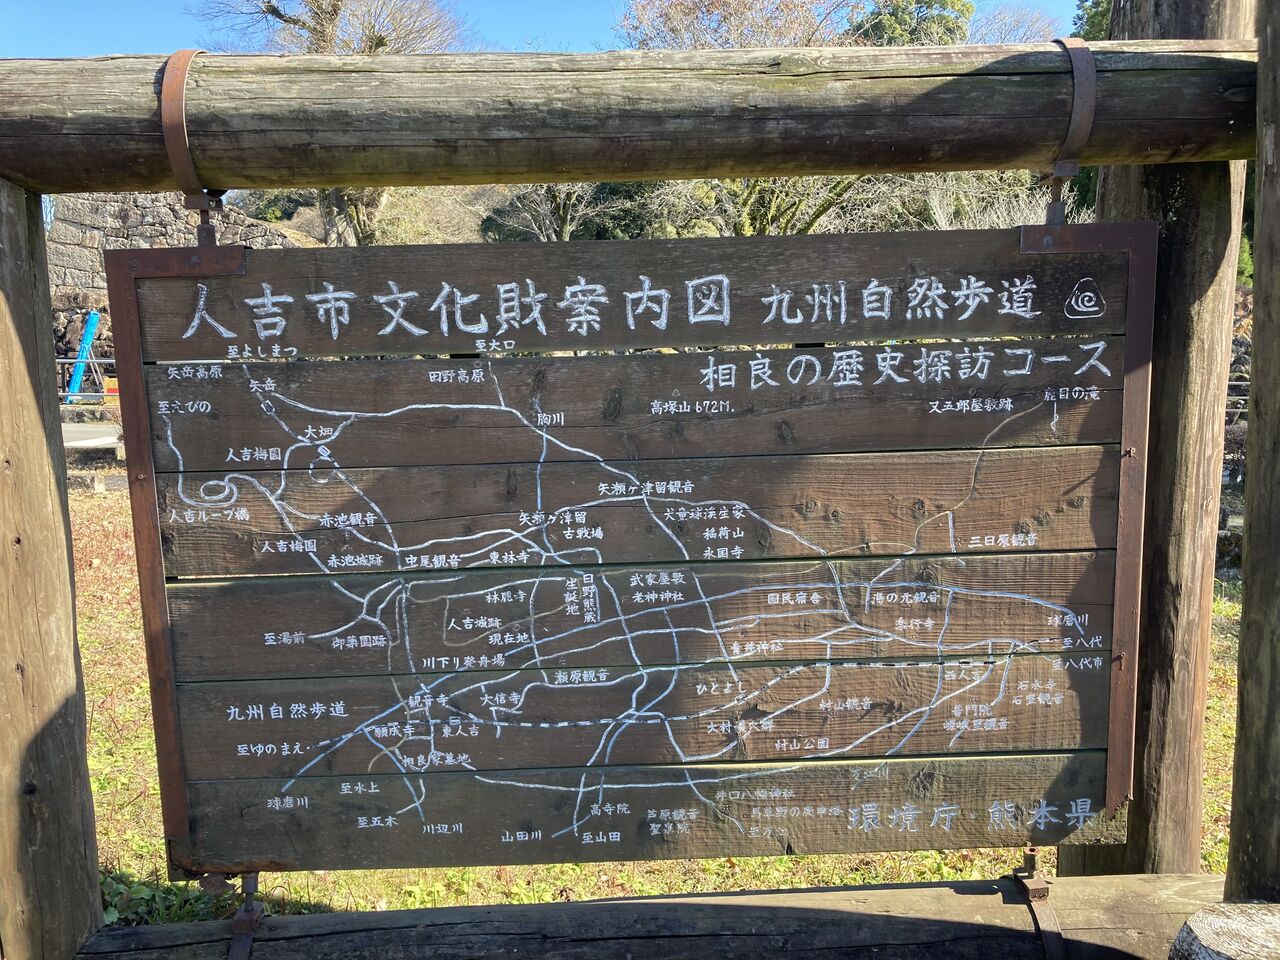 人吉市文化財案内図 九州自然歩道
相良の歴史探訪コース
至よしまつ
至大口
矢岳高原
矢岳
田野高原
至えびの
胸川
高塚山 672M.
又五郎屋敷跡
鹿目の滝
大畑
人吉梅園
矢瀬ヶ津留観音
人吉ループ橋
赤池観音
矢瀬ヶ津留
古戦場
犬童球渓生家
稲荷山
永国寺
三日原観音
人吉梅園
赤池城跡
中尾観音
東林寺
日野熊蔵
生誕地
武家屋敷
老神神社
林鹿寺
国民宿舎
湯の元観音
人吉城跡
現在地
球磨川
至湯前
御薬園跡
至八代
川下り発舟場
至八代市
瀬原観音
ひとよし
西人吉
石水寺
石室観音
観音寺
大信寺
村山観音
普門院
嵯峨里観音
九州自然歩道
願成寺
東人吉
至ゆのまえ
相良家墓地
村山公園
至水上
球磨川
至五木
川辺川
山田川
高寺院
至山田
芦原観音
聖泉院
井口八幡神社
環境庁・熊本県